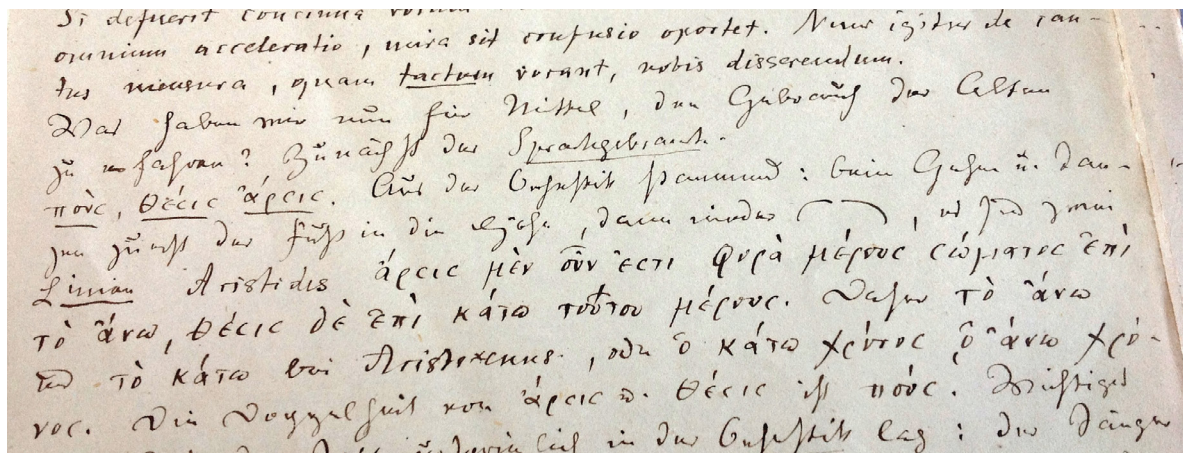 Si defuerit concinna vocum
omnium acceleratio, mira sit confusio oportet. Nunc igitur de can-
tus mensura, quam tactum vocant, nobis disserendum.
Was haben wir nun für Mittel, den Gebrauch der Alten
zu erfahren? Zunächst der Sprachgebrauch.
πούς, θέσις ἄρσις. Aus der Orchestik stammend: beim Gehen u. Tan-
zen zuerst der Fuß in die Höhe, dann nieder, es sind zwei
Linien Aristides ἄρσις μὲν οὖν ἐστι φορὰ μέρους σώματος ἐπὶ
τὸ ἄνω, θέσις δὲ ἐπὶ κάτω τοῦτου μέρους. Daher τὸ ἄνω
und τὸ κάτω bei Aristoxenus, oder ὁ κάτω χρόνος, ὁ ἄνω χρό-
νος. Die Doppelheit von ἄρσις u. θέσις ist πούς. Wichtiges
in der Orchestik lag: der Tänzer